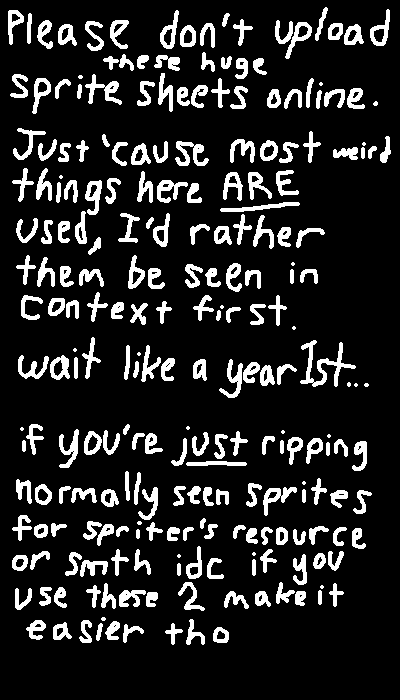 Please don't upload
these huge
sprite sheets online.
Just 'cause most weird
things here ARE
used, I'd rather
them be seen in
context first.
wait like a year 1st...
if you're just ripping
normally seen sprites
for spriter's resource
or smth idc if you
use these 2 make it
easier tho